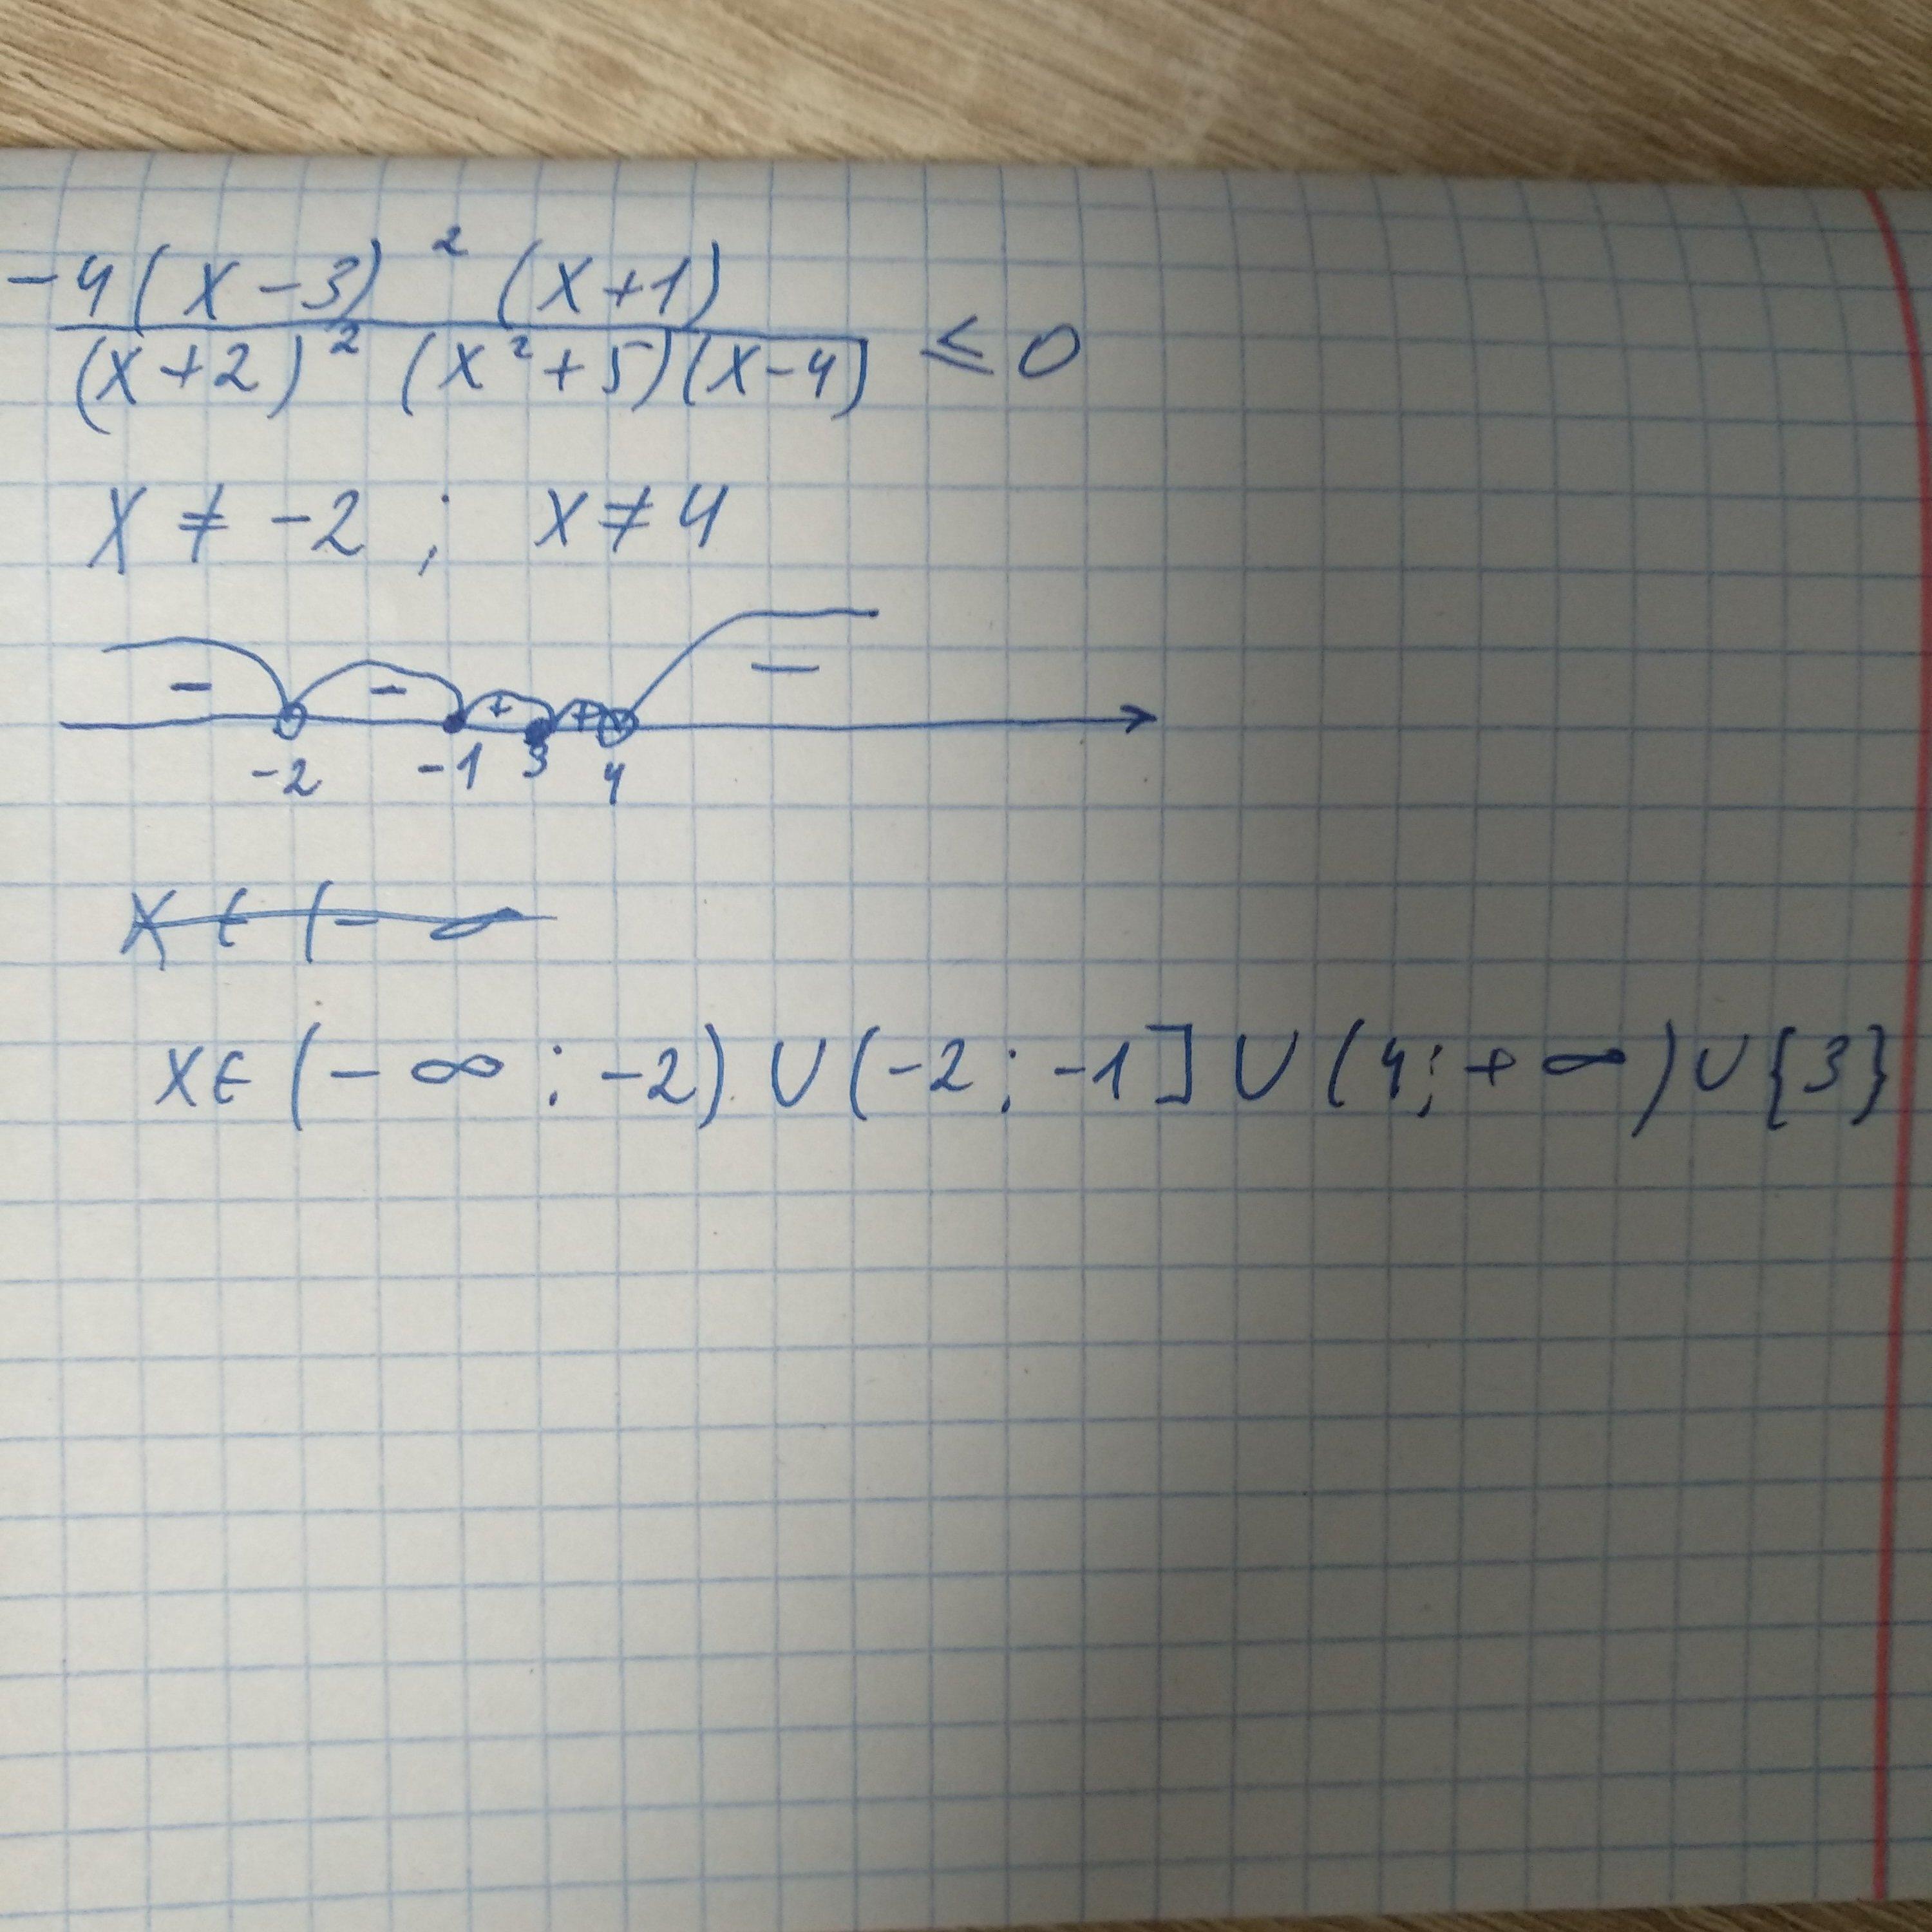 -4(x-3)² (x+1)
(x+2)² (x²+5)(x-4) ≤ 0
x ≠ -2 ; x ≠ 4
- - + + -
-2 -1 3 4
x ∈ (-∞
x ∈ (-∞ ; -2) ∪ (-2 ; -1] ∪ (4 ; +∞) ∪ {3}